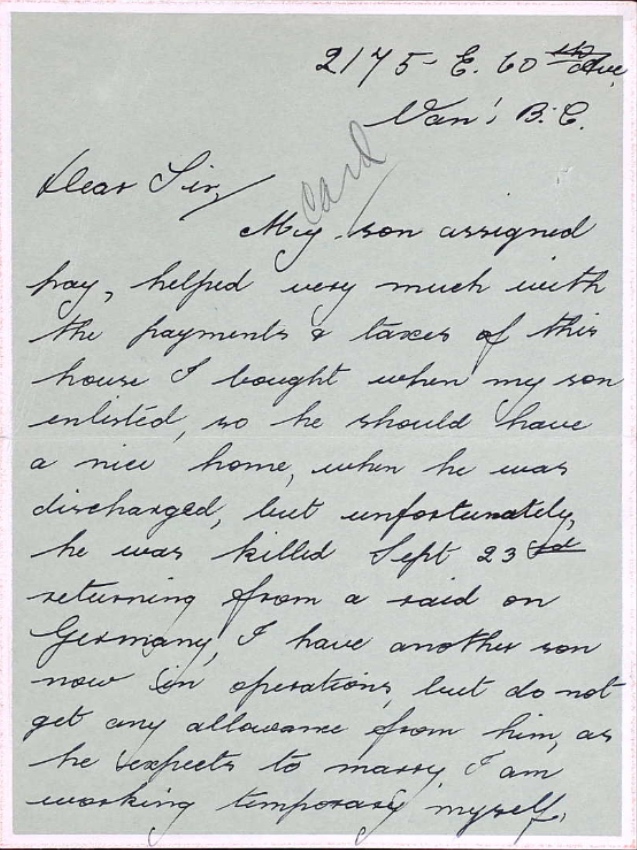 2175 - E. 60th Ave,
Van! B.C.
card
Dear Sir,
My son assigned
pay, helped very much with
the payments & taxes of this
house I bought when my son
enlisted, so he should have
a nice home, when he was
discharged, but unfortunately,
he was killed Sept 23rd
returning from a raid on
Germany, I have another son
now in operations, but do not
get any allowance from him, as
he expects to marry. I am
working temporary myself,